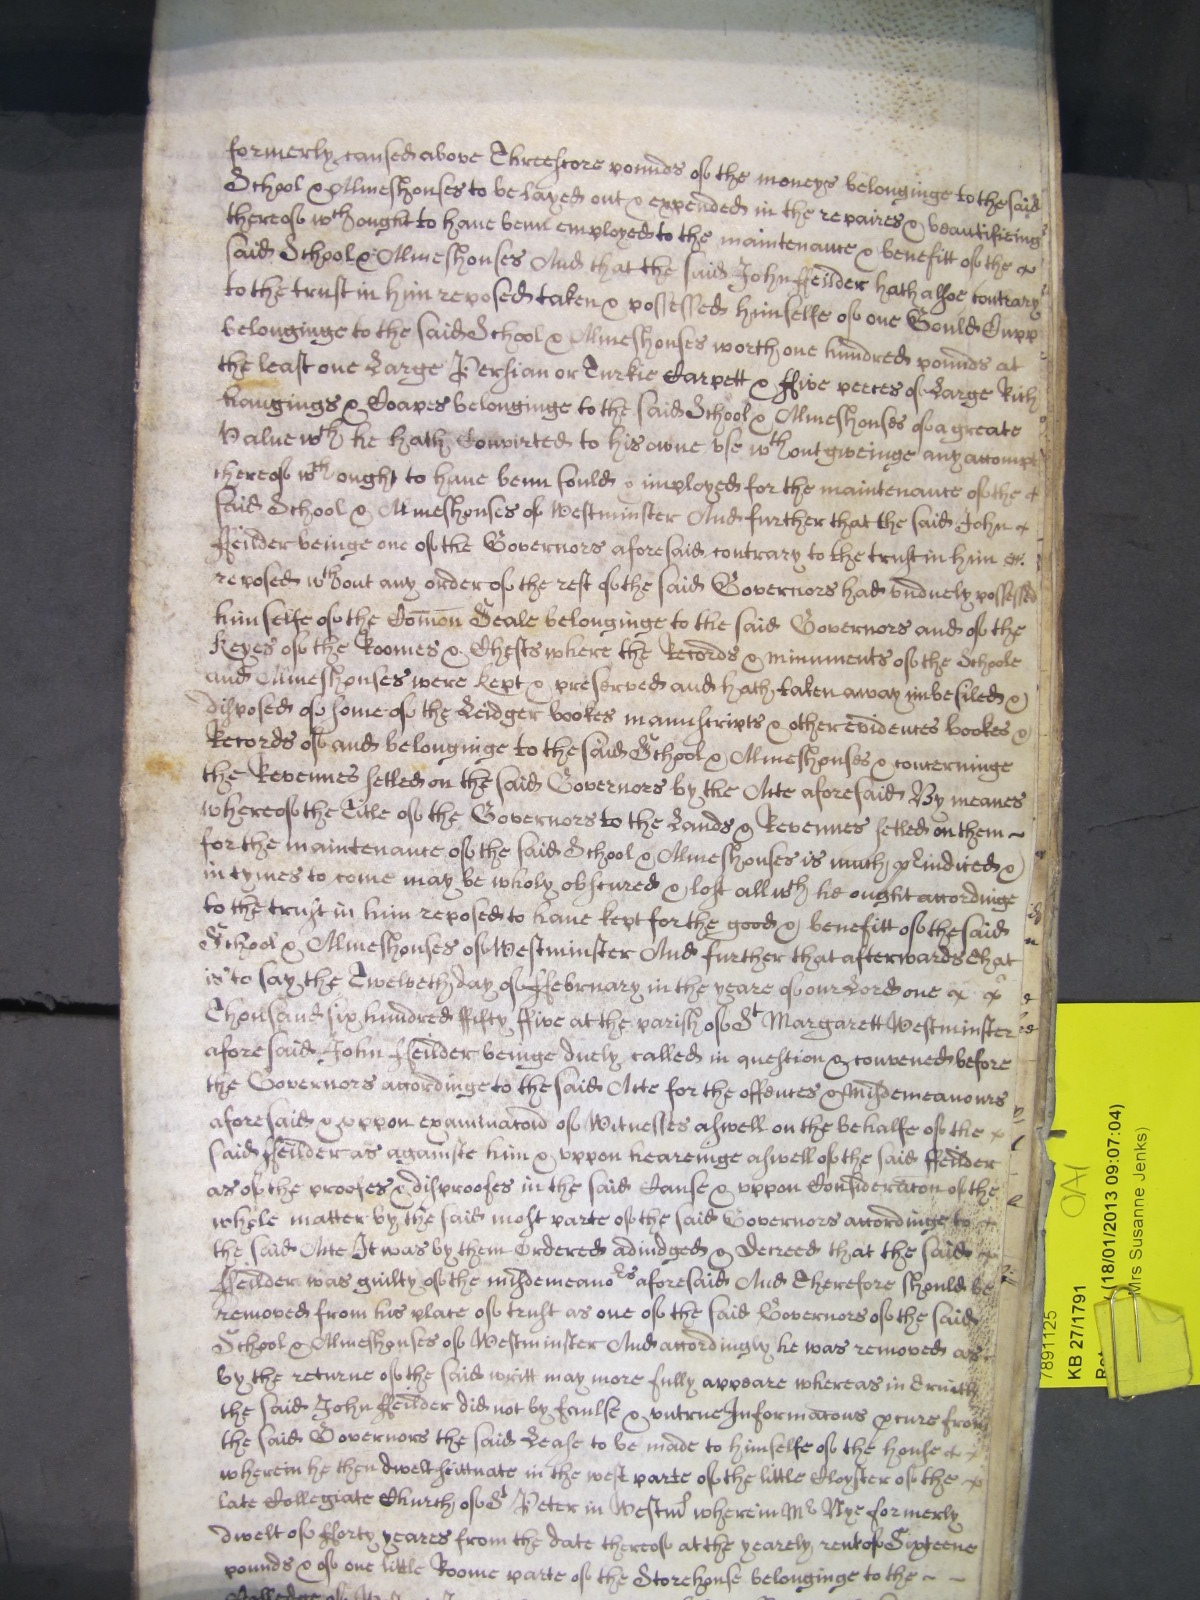 formerly caused above Threescore pounds of the moneys belonginge to the said
School & Almeshouses to be layed out & expended in the repaires & beautifieing
thereof wch ought to have benn employed to the maintenance & benefitt of the
said School & Almeshouses And that the said John ffeilder hath alsoe contrary
to the trust in him reposed taken & possessed himselfe of one Gould Cupp
belonginge to the said School & Almeshouses worth one hundred pounds at
the least one Large Persian or Turkie Carpett & ffive peeces of Large Rich
hangings & Coapes belonginge to the said School & Almeshouses of a greate
Value wch he hath Convirted to his owne use wthout giveinge any accompt
thereof wch ought to have benn sould & imployed for the maintenance of the
said School & Almeshouses of Westminster And further that the said John
ffeilder beinge one of the Governors aforesaid contrary to the trust in him
reposed wthout any order of the rest of the said Governors had unduely possessed
himselfe of the Comon Seale belonginge to the said Governors and of the
Keyes of the Roomes & Chests where the Records & minuments of the Schoole
and Almeshouses were kept & preserved and hath taken away imbesiled &
disposed of some of the Leidger bookes manuscripts & other evidences bookes &
Records of and belonginge to the said School & Almeshouses & concerninge
the Revenues setled on the said Governors by the Acte aforesaid By meanes
whereof the Title of the Governors to the Lands & Revenues setled on them
for the maintenance of the said School & Almeshouses is much priudiced &
in tymes to come may be wholy obscured & lost all wch he ought accordinge
to the trust in him reposed to have kept for the good & benefitt of the said
School & Almeshouses of Westminster And further that afterwards that
is to say the Twelveth day of ffebruary in the yeare of our Lord one
Thousand six hundred ffifty ffive at the parish of St Margarett Westminster
aforesaid John ffeilder beinge duely called in question & convened before
the Governors accordinge to the said Acte for the offences & misdemeanours
aforesaid & uppon examinacoid of Witnesses aswell on the behalfe of the
said ffeilder as againste him & uppon heareinge aswell of the said ffeilder
as of the proofes & disproofes in the said Cause & uppon Consideracon of the
whole matter by the said most parte of the said Governors accordinge to
the said Acte It was by them Ordered adiudged & Decreed that the said
ffeilder was guilty of the misdemeanors aforesaid And Therefore should be
removed from his place of trust as one of the said Governors of the said
School & Almeshouses of Westminster And accordingly he was removed as
by the returne of the said writt may more fully appeare whereas in truith
the said John ffeilder did not by faulse & untrue Informacons pcure from
the said Governors the said Lease to be made to himselfe of the house
wherein he then dwelt scittuate in the west parte of the little Cloyster of the
late Collegiate Church of St Peter in Westmr wherein Mr Nye formerly
dwelt of fforty yeares from the date thereof at the yearely rent of Sixteene
pounds & of one little Roome parte of the Storehouse belonginge to the
7891125
KB 27/1791
(18/01/2013 09:07:04)
Mrs Susanne Jenks)